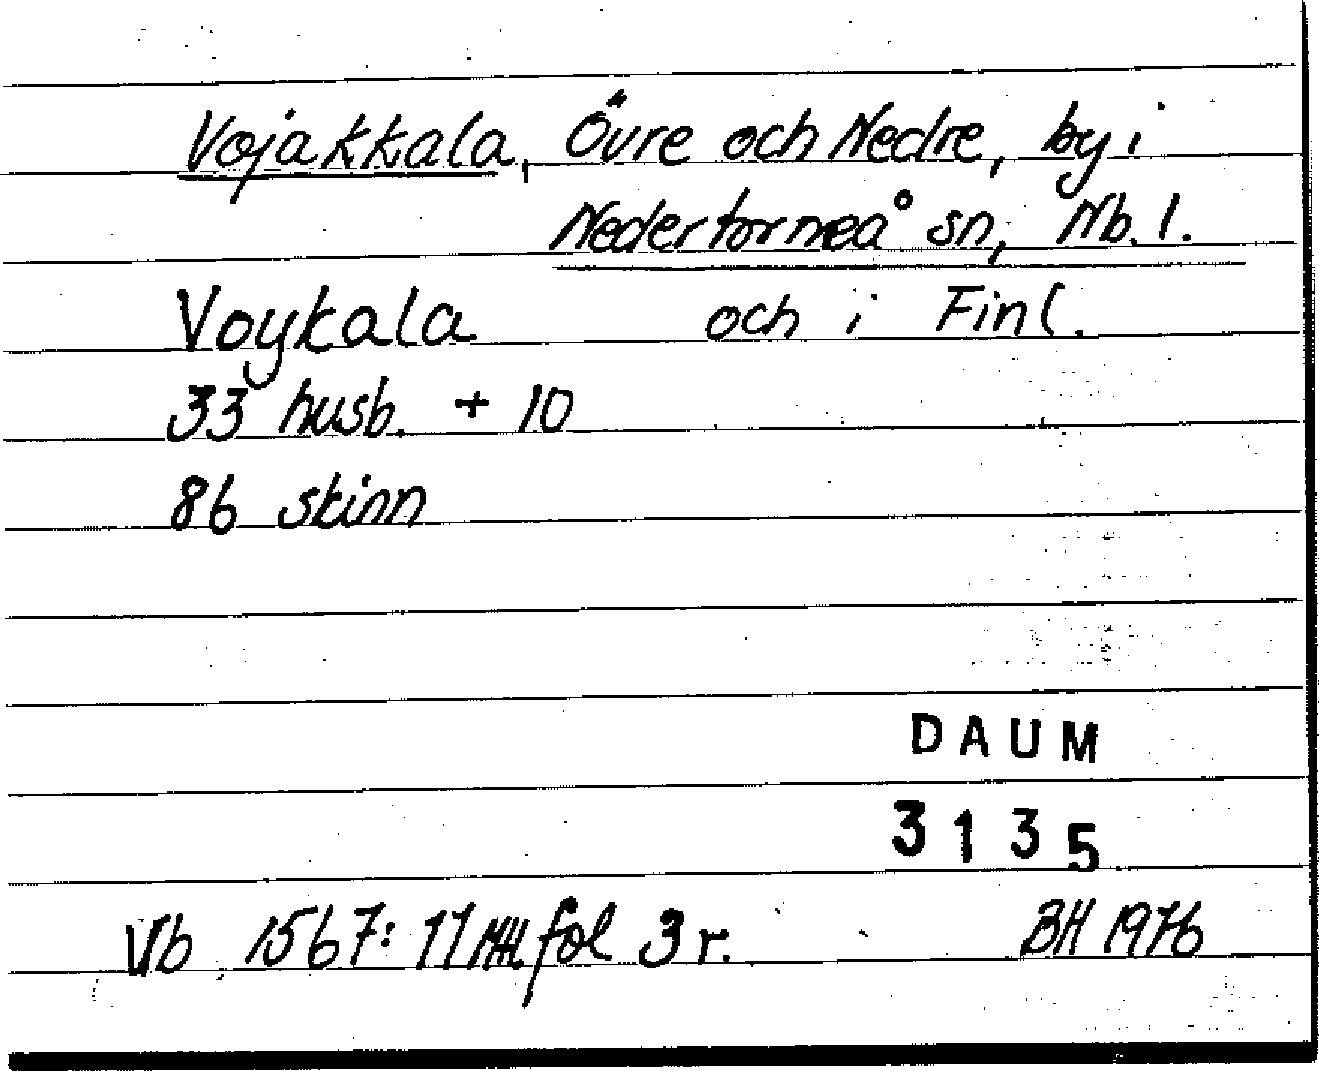 Vojakkala, Övre och Nedre, by i
Nedertorneå sn, Nb. l.
Voykala och i Finl.
33 husb. + 10
86 skinn
DAUM
3135
Vb 1567: 11 fol 3 r. BH 1976